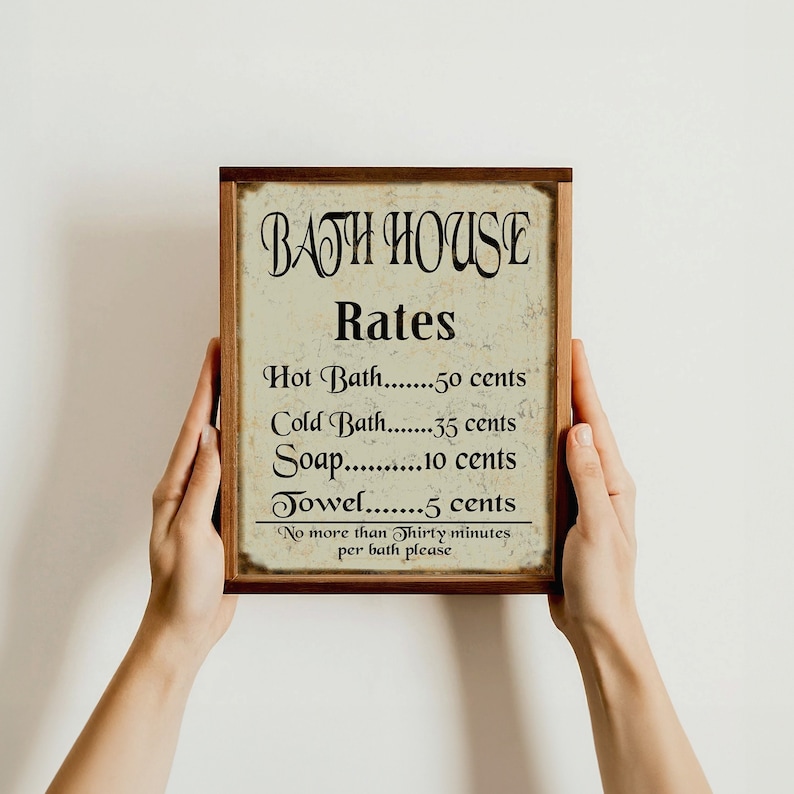 BATH HOUSE
Rates
Hot Bath.......50 cents
Cold Bath.......35 cents
Soap..........10 cents
Towel........5 cents
No more than Thirty minutes
per bath please